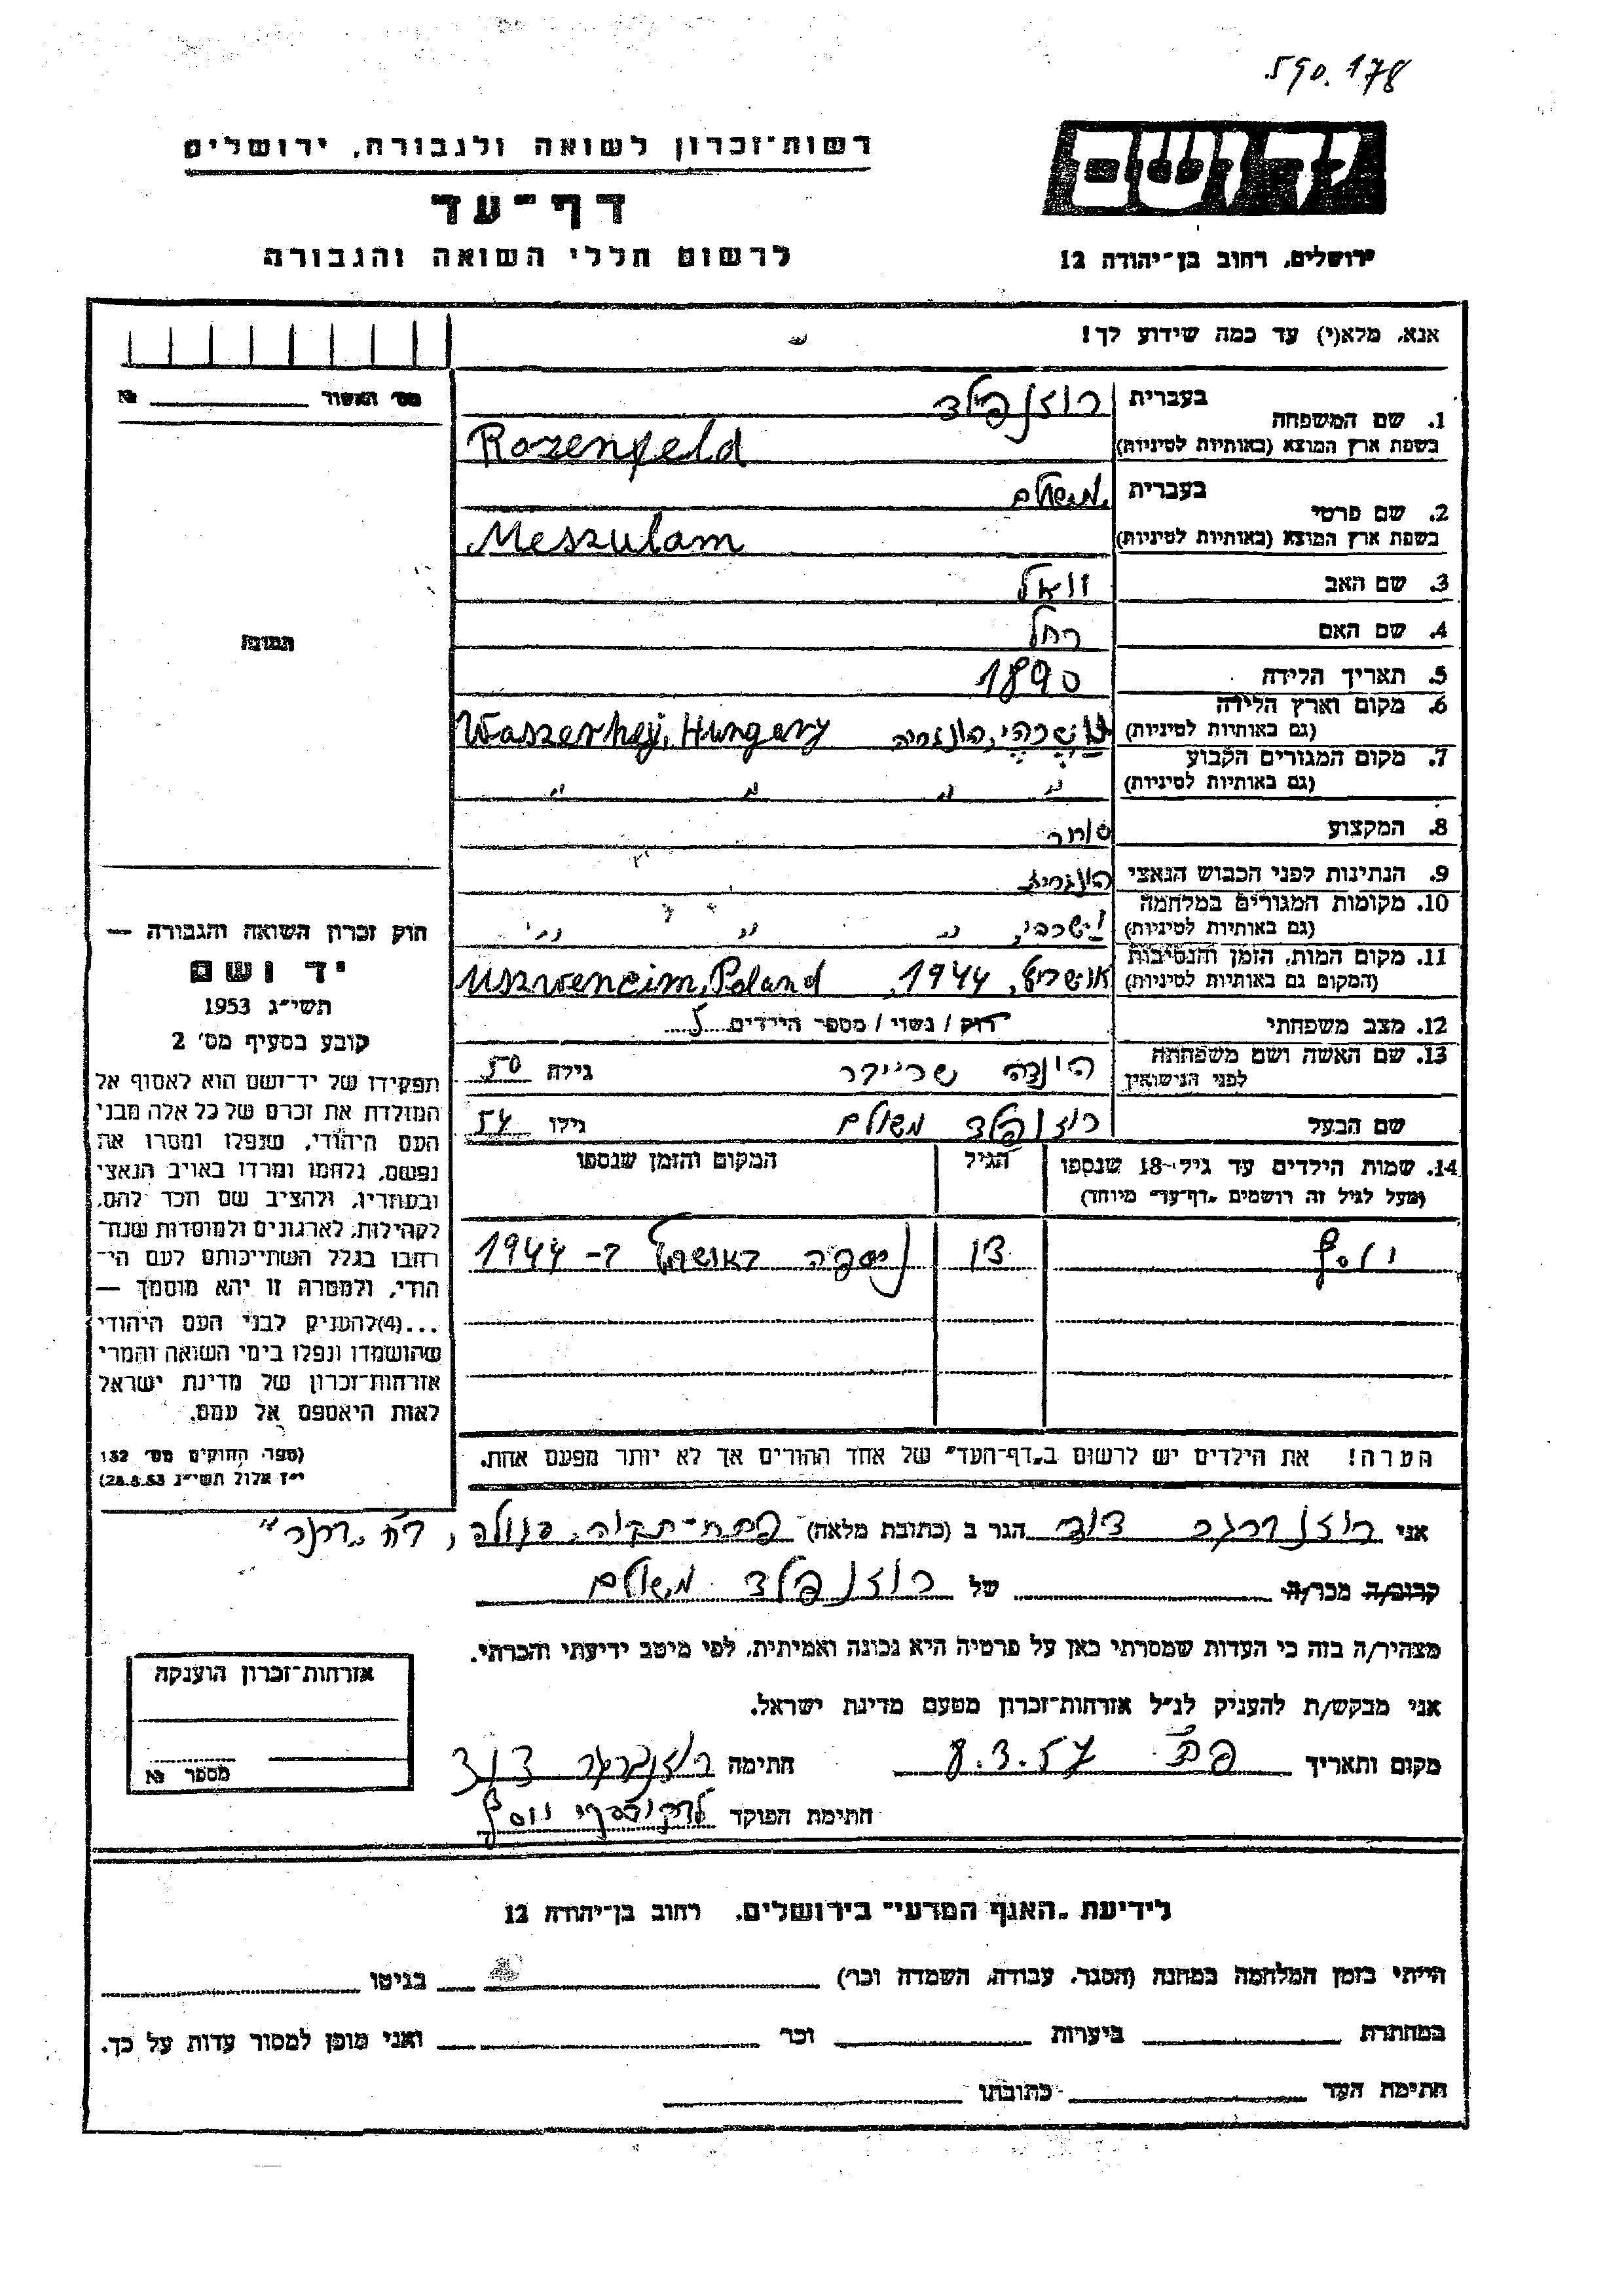 590.178
יד ושם
ירושלים, רחוב בן־יהודה 12
רשות־זכרון לשואה ולגבורה, ירושלים
דף־עד
לרשום חללי השואה והגבורה
אנא, מלא(י) עד כמה שידוע לך!
מס׳ האשור № 
התמונה
חוק זכרון השואה והגבורה —
יד ושם
תשי״ג 1953
קובע בסעיף מס׳ 2
תפקידו של יד־ושם הוא לאסוף אל
המולדת את זכרם של כל אלה מבני
העם היהודי, שנפלו ומסרו את
נפשם, נלחמו ומרדו באויב הנאצי
ובעוזריו, ולהציב שם וזכר להם,
לקהילות, לארגונים ולמוסדות שנח־
רבו בגלל השתייכותם לעם הי־
הודי, ולמטרה זו יהא מוסמך —
...(4)להעניק לבני העם היהודי
שהושמדו ונפלו בימי השואה והמרי
אזרחות־זכרון של מדינת ישראל
לאות היאספם אל עמם.
(ספר החוקים מס׳ 132
י״ז אלול תשי״ג 28.8.53)
1. שם המשפחה בעברית רוזנפלד
בשפת ארץ המוצא (באותיות לטיניות) Rozenfeld
2. שם פרטי בעברית משולם
בשפת ארץ המוצא (באותיות לטיניות) Meszulam
3. שם האב יואל
4. שם האם רחל
5. תאריך הלידה 1890
6. מקום וארץ הלידה
(גם באותיות לטיניות) ושרהי, הונגריה Waszerhej, Hungary
7. מקום המגורים הקבוע
(גם באותיות לטיניות) " " " "
8. המקצוע סוחר
9. הנתינות לפני הכבוש הנאצי הונגרית
10. מקומות המגורים במלחמה
(גם באותיות לטיניות) ושרהי, " " "
11. מקום המות, הזמן והנסיבות
(המקום גם באותיות לטיניות) אושויץ, 1944, Uszwencim, Poland
12. מצב משפחתי רוק / נשוי / מספר הילדים 5
13. שם האשה ושם משפחתה
לפני הנישואין הינדה שרייבר גילה 50
שם הבעל רוזנפלד משולם גילו 54
14. שמות הילדים עד גיל 18־ שנספו
(מעל לגיל זה רושמים „דף־עד״ מיוחד)
הגיל
המקום והזמן שנספו
יוסף 13 נספה באושויץ ב־ 1944
הערה! את הילדים יש לרשום ב„דף־העד״ של אחד ההורים אך לא יותר מפעם אחת.
אני רוזנברגר דוד הגר ב (כתובת מלאה) פתח־תקוה, סגולה,
קרוב/ה מכר/ה של רוזנפלד משולם
מצהיר/ה בזה כי העדות שמסרתי כאן על פרטיה היא נכונה ואמיתית, לפי מיטב ידיעתי והכרתי.
אני מבקש/ת להעניק לנ״ל אזרחות־זכרון מטעם מדינת ישראל.
מקום ותאריך פ״ת 8.3.57 חתימה רוזנברגר דוד
חתימת הפוקד יוסף
אזרחות־זכרון הוענקה
מספר №
לידיעת „האגף המדעי״ בירושלים, רחוב בן־יהודה 12
הייתי בזמן המלחמה במחנה (הסגר, עבודה, השמדה וכו׳) בגיטו
במחתרת ביערות וכו׳ ואני מוכן למסור עדות על כך.
חתימת העד כתובתו